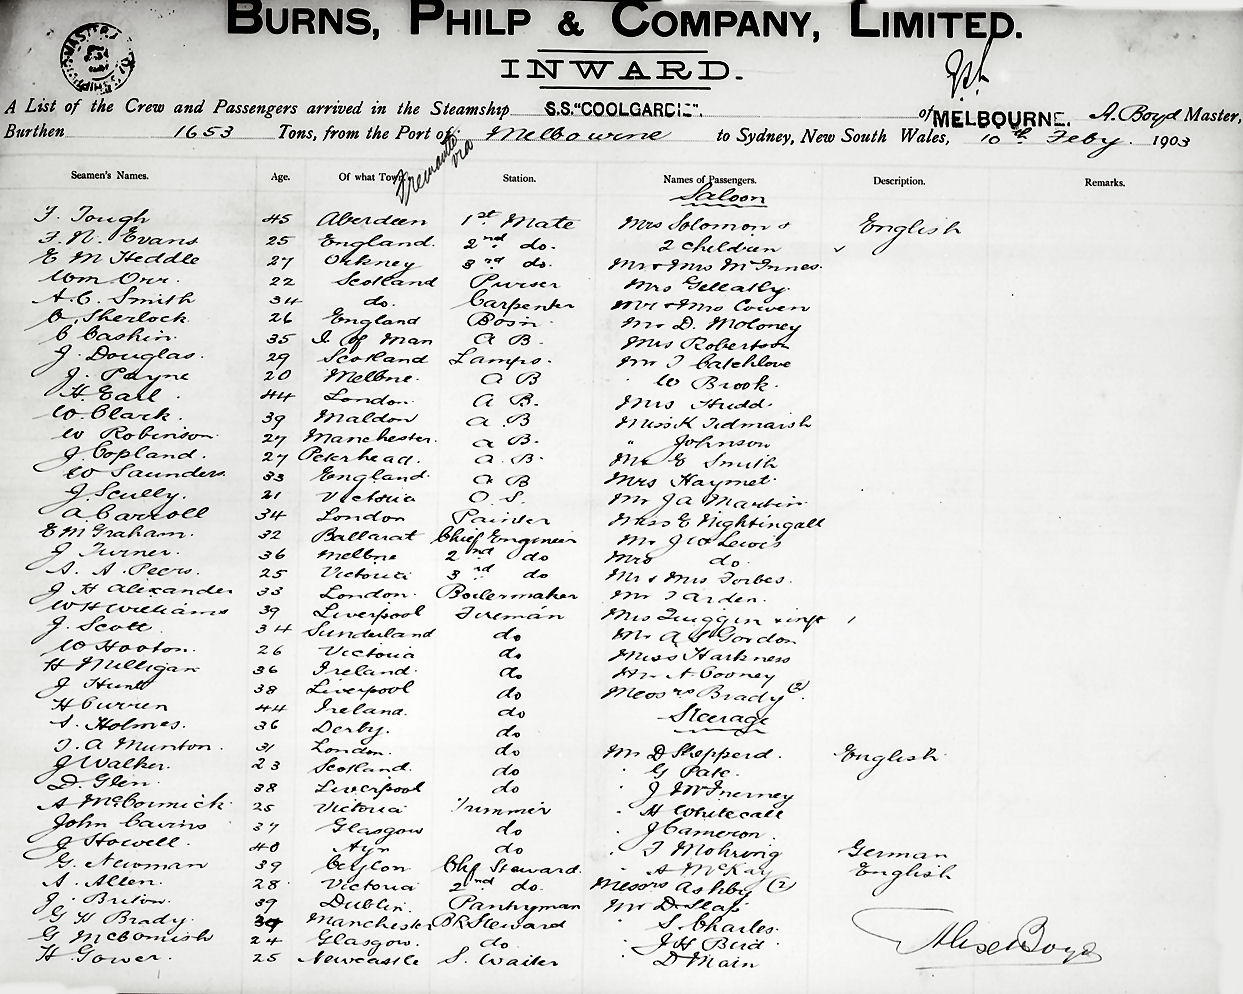 BURNS, PHILP & COMPANY, LIMITED.
INWARD.
A List of the Crew and Passengers arrived in the Steamship S.S. "COOLGARDIE". of MELBOURNE. A. Boyd Master,
Burthen 1653 Tons, from the Port of Melbourne to Sydney, New South Wales, 10th Feby. 1903
Fremantle via
Seamen's Names. Age. Of what Town Station. Names of Passengers. Description. Remarks.
Saloon
F. Tough 45 Aberdeen 1st Mate Mrs Solomon & English
F. N. Evans 25 England. 2nd do. 2 children
E M Heddle 27 Orkney 3rd do. Mr & Mrs McInnes.
Wm Orr. 22 Scotland Purser Mrs Gellatly.
A. C. Smith 34 do. Carpenter Mr & Mrs Cowen
O. Sherlock. 26 England Bosn. Mr D. Moloney
C Caskin. 35 I. of Man A B. Mrs Robertson
J. Douglas. 29 Scotland Lamps. Mr T Catchlove
J. Payne 20 Melbne. A B " W Brook.
H. Earl. 44 London. A B. Mrs Hudd.
W. Clark. 39 Maldon A B Miss K Tidmarsh
W Robinson. 27 Manchester. A B. " Johnson
J. Copland. 27 Peterhead. A. B. Mr E Smith
W Saunders. 33 England. A B Mrs Haymet.
J. Scully. 21 Victoria O. S. Mr J A Martin
A Carroll 34 London Painter Miss E Nightingall
E M Graham. 32 Ballarat Chief Engineer Mr J W Lewis
J Turner. 36 Melbne 2nd do Mrs do.
S. A. Peers. 25 Victoria 3rd do Mr & Mrs Forbes.
J H Alexander 33 London. Boilermaker Mr T Arden.
W H Williams 39 Liverpool Fireman Mrs Quiggin & inft 1
J. Scott 34 Sunderland do Mr A S Gordon
W Hooton. 26 Victoria do Miss Harkness
H Milligan 36 Ireland. do Mr A Cooney
J Hunt 38 Liverpool do Messrs Brady (2).
H Curren 44 Ireland. do Steerage
S. Holmes. 36 Derby. do
T. A Munton. 31 London. do Mr D Shepperd. English.
J Walker. 23 Scotland. do " G Pate.
D. Glen. 38 Liverpool do " J McInerney
A McCormick. 25 Victoria Trimmer " H Whitecall
John Cavins 37 Glasgow do " J Cameron.
J Howell. 40 Ayr do " T Mohring German
G. Newman 39 Ceylon Chf Steward. " A McKay English
A. Allen. 28 Victoria 2nd do. Messrs Ashby (2)
J. Briton. 39 Dublin. Pantryman Mr D Slas
G H Brady. 39 Manchester BR Steward " S Charles.
G McComish 24 Glasgow. do " J H Bird.
H Gower. 25 Newcastle S. Waiter " D Main
Alex Boyd